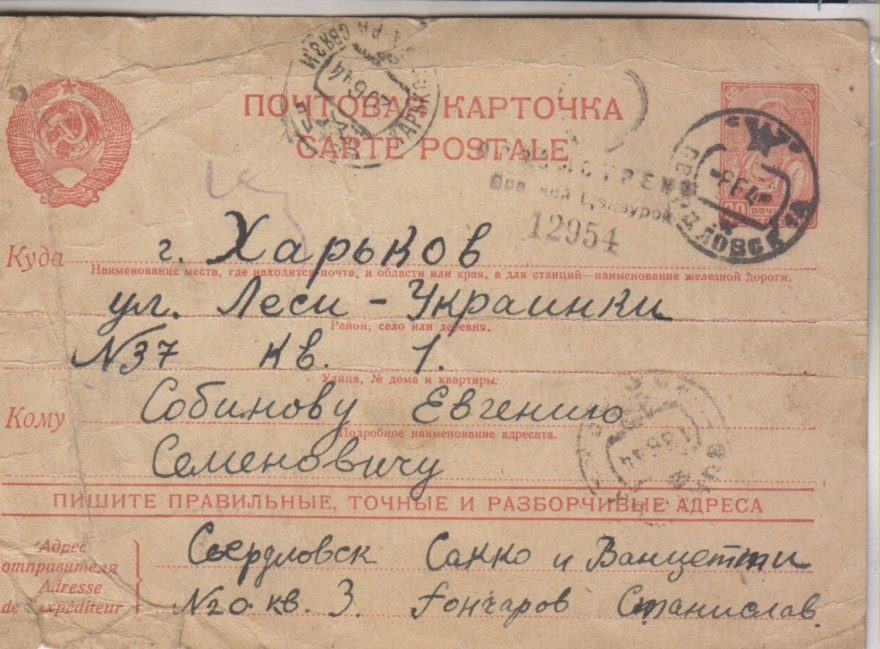 ПОЧТОВАЯ КАРТОЧКА
CARTE POSTALE
ПРОСМОТРЕНО
Военной Цензурой
12954
Куда г. Харьков
Наименование места, где находится почта, и области или края, а для станций—наименование железной дороги.
ул. Леси-Украинки
Район, село или деревня.
№37 кв. 1.
Улица, № дома и квартиры.
Кому Собинову Евгению
Подробное наименование адресата.
Семеновичу
ПИШИТЕ ПРАВИЛЬНЫЕ, ТОЧНЫЕ И РАЗБОРЧИВЫЕ АДРЕСА
Адрес отправителя
Adresse de l'expéditeur
Свердловск Сакко и Ванцетти
№20 кв. 3. Гончаров Станислав.